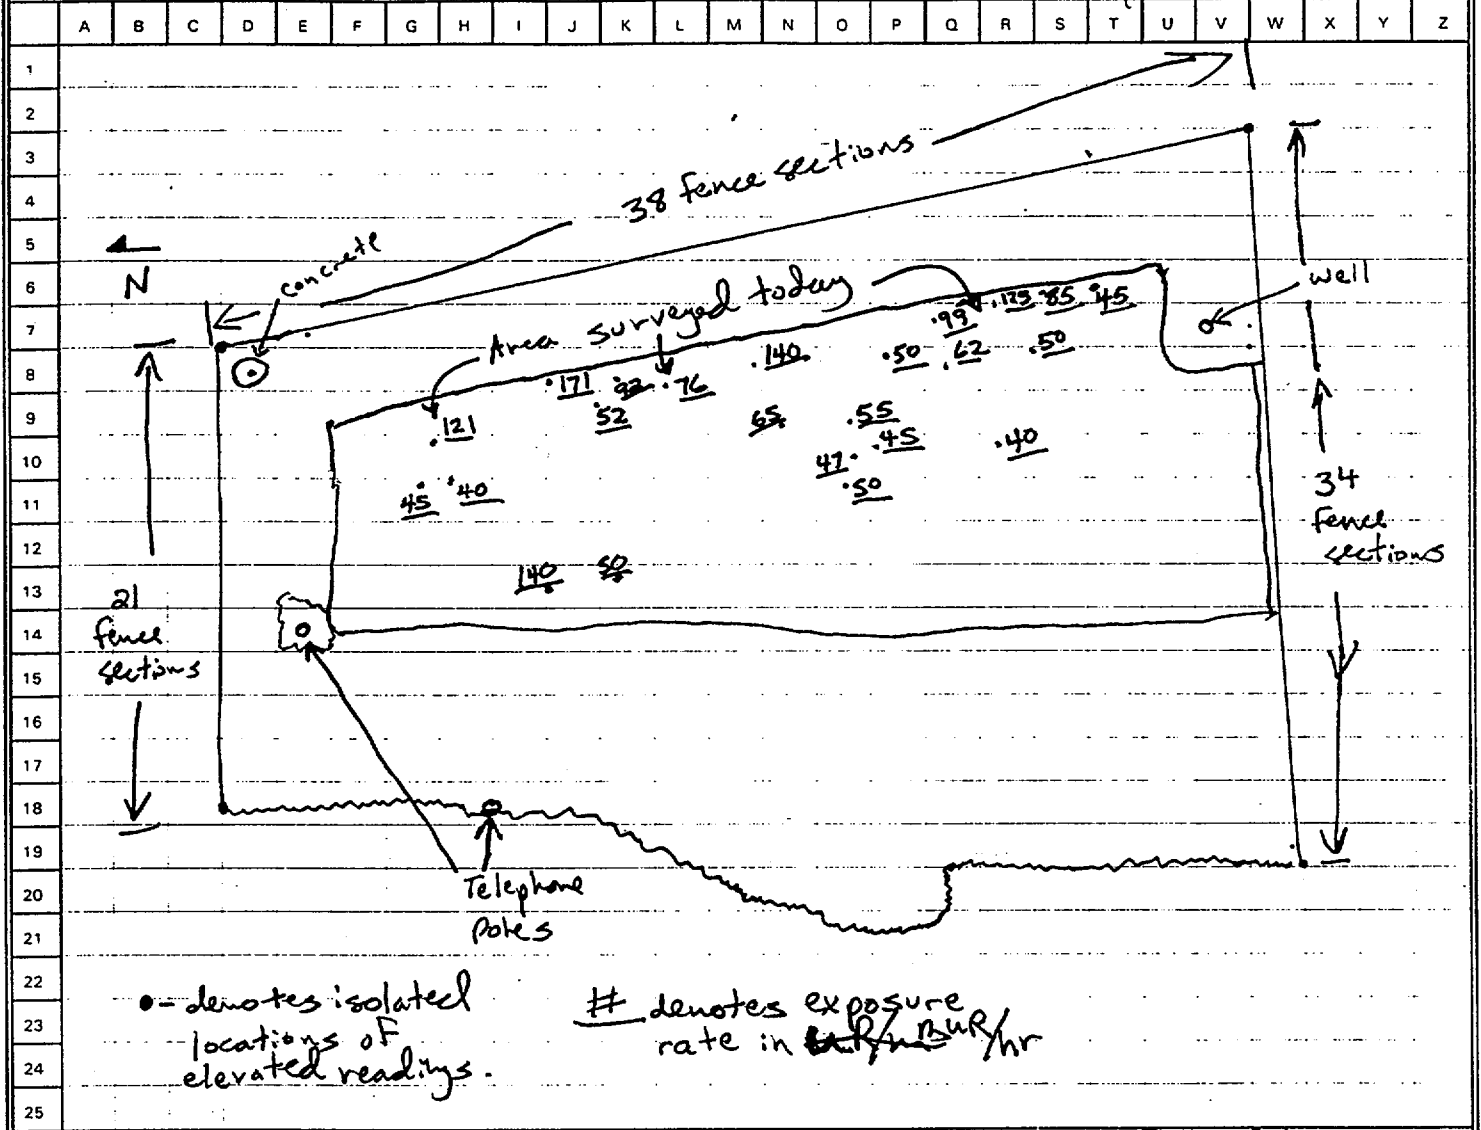 A B C D E F G H I J K L M N O P Q R S T U V W X Y Z
1
2
3
4
5
6
7
8
9
10
11
12
13
14
15
16
17
18
19
20
21
22
23
24
25
38 fence sections
N
concrete
Area surveyed today
well
.99 .123 .85 .45
.171 .92 .76 .140 .50 .62 .50
.121 52 65 .55
47 .45 .40
45 .40 .50
140 50
21
fence
sections
34
fence
sections
Telephone
poles
●- denotes isolated
locations of
elevated readings.
# denotes exposure
rate in uR/hr